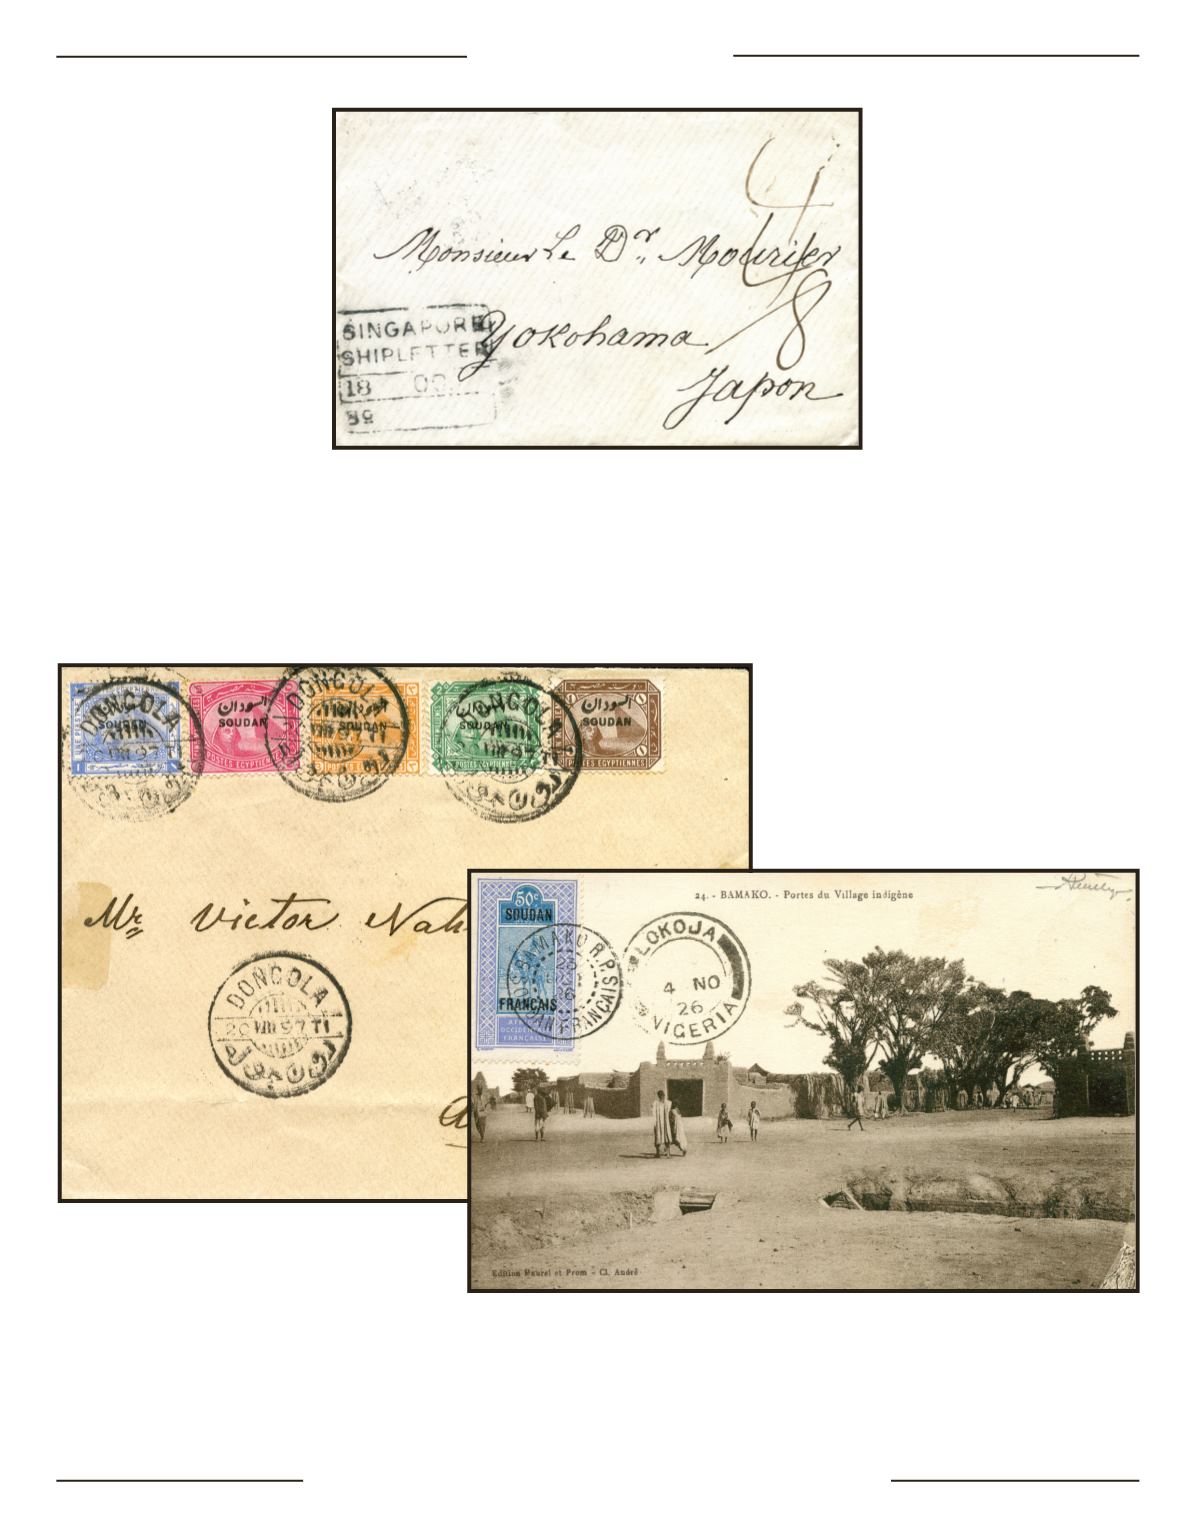 Monsieur Le Dr. Mourier
4
Yokohama
8
Japon
SINGAPORE
SHIPLETTER
18
DONGOLA
السودان
SOUDAN
POSTES EGYPTIENNES
DONGOLA
السودان
SOUDAN
DONGOLA
السودان
SOUDAN
POSTES EGYPTIENNES
السودان
SOUDAN
POSTES EGYPTIENNES
Mr Victor
DONGOLA
VIII 97 T1
24. - BAMAKO. - Portes du Village indigène
50c
SOUDAN
FRANÇAIS
AFRIQUE
OCCIDENTALE
FRANÇAISE
BAMAKO R.P.
SOUDAN FRANÇAIS
LOKOJA
4 NO
26
NIGERIA
Edition Maurel et Prom - Cl. André